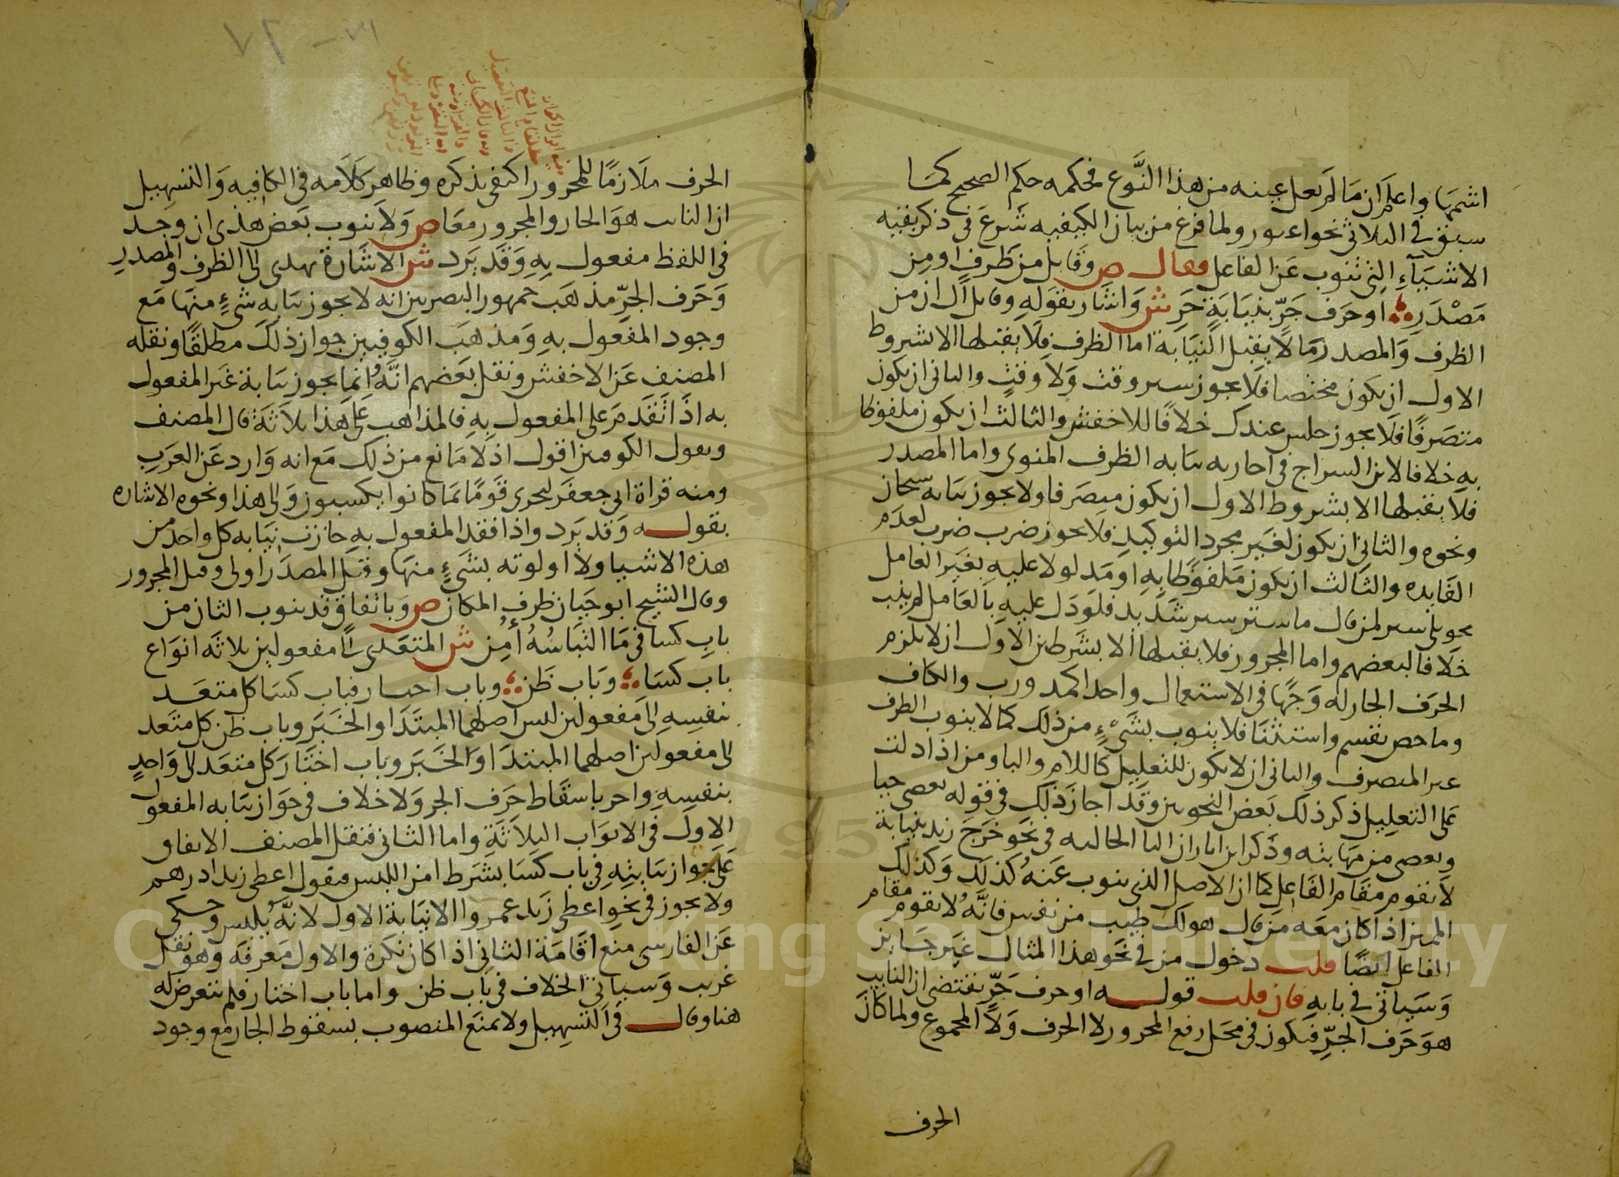 اشمها واعلم ان ما لم يعل عينه من هذا النوع فحكمه حكم الصحيح كما
سبق في الثلاثي نحو اعتور ولما فرغ من بيان الكيفيه شرع في ذكر بقيه
الاشيآء التي تنوب عن الفاعل فقال ص وقابل من ظرف او من
مصدر او حرف جر بنيابة حر ش واشار بقوله وقابل الى ان من
الظرف والمصدر ما لا يقبل النيابة اما الظرف فلا يقبلها الا بشروط
الاول ان يكون مختصا فلا يجوز سير وقت ولا وقت والثاني ان يكون
متصرفا فلا يجوز جلس عندك خلافا للاخفش والثالث ان يكون ملفوظا
به خلافا لابن السراج في اجازته نيابه الظرف المنوي واما المصدر
فلا يقبلها الا بشروط الاول ان يكون متصرفا ولا يجوز نيابه سبحان
ونحوه والثاني ان يكون لغير مجرد التوكيد فلا يجوز ضرب ضرب لعدم
الفايده والثالث ان يكون ملفوظا به او مدلولا عليه بغير العامل
نحو بلى سير لمن قال ما سير سير شديد فلو دل عليه بالعامل لم ينب
خلافا لبعضهم واما المجرور فلا يقبلها الا بشرطين الاول ان لا يلزم
الحرف الجار له وجها في الاستعمال واحدا كمذ ورب والكاف
وما خص بقسم واستثنا فلا ينوب بشيء من ذلك كما لا ينوب الظرف
غير المتصرف والثاني ان لا يكون للتعليل كاللام والباء ومن اذا دلت
على التعليل ذكر ذلك بعض النحويين وقد اجاز ذلك في قوله يغضي حيا
ويغضى من مهابته وذكر ابن اياز ان البا الحاليه في نحو خرج زيد بثيابه
لا تقوم مقام الفاعل كما ان الاصل الذي ينوب عنه كذلك وكذلك
المميز اذا كان معه من قال هولك طيب من نفس فانه لا يقوم مقام
الفاعل ايضا قلت دخول من في نحو هذا المثال غير جايز
وسياتي في بابه فان قلت قوله او حرف جر يقتضي ان النايب
هو حرف الجر فيكون في محل رفع المجرور لا الحرف ولا المجموع ولما كان
الحرف
الحرف ملازما للمجرور اكتفى بذكره وظاهر كلامه في الكافيه والتسهيل
ان النائب هو الجار والمجرور معا ص ولا ينوب بعض هذي ان وجد
في اللفظ مفعول به وقد يرد ش الاشارة بهذى الى الظرف والمصدر
وحرف الجر مذهب جمهور البصريين انه لا يجوز نيابه شيء منها مع
وجود المفعول به ومذهب الكوفيين جواز ذلك مطلقا ونقله
المصنف عن الاخفش ونقل بعضهم انه انما يجوز نيابة غير المفعول
به اذا تقدم على المفعول به فالمذاهب على هذا ثلاثة قال المصنف
وبقول الكوفيين اقول اذ لا مانع من ذلك مع انه وارد عن العرب
ومنه قراة ابي جعفر ليجزى قوما بما كانوا يكسبون والى هذا ونحوه الاشاره
بقوله وقد يرد واذا فقد المفعول به جازت نيابه كل واحد من
هذه الاشيا ولا اولوته بشيء منها وقيل المصدر اولى وقيل المجرور
وقال الشيخ ابو حيان ظرف المكان ص وباتفاق قد ينوب الثان من
باب كسا في ما التباسه امن ش المتعدى الى مفعولين ثلاثه انواع
باب كسا وباب ظن وباب اختار فباب كسا كل متعد
بنفسه الى مفعولين ليس اصلهما المبتدا والخبر وباب ظن كل متعد
الى مفعولين اصلهما المبتدا والخبر وباب اختار كل متعد الى واحد
بنفسه واخر باسقاط حرف الجر ولا خلاف في جواز نيابه المفعول
الاول في الابواب الثلاثة واما الثاني فنقل المصنف الاتفاق
على جواز نيابته في باب كسا بشرط امن اللبس فيقول اعطي زيدا درهم
ولا يجوز في نحو اعطي زيد عمروا الا نيابة الاول لانه يلبس وحكي
عن الفارسي منع اقامة الثاني اذا كان نكرة والاول معرفه وهو نقل
غريب وسياتي الخلاف في باب ظن واما باب اختار فلم يتعرض له
هنا وقال في التسهيل ولا تمنع المنصوب بسقوط الجار مع وجود
Copyright © King Saud University